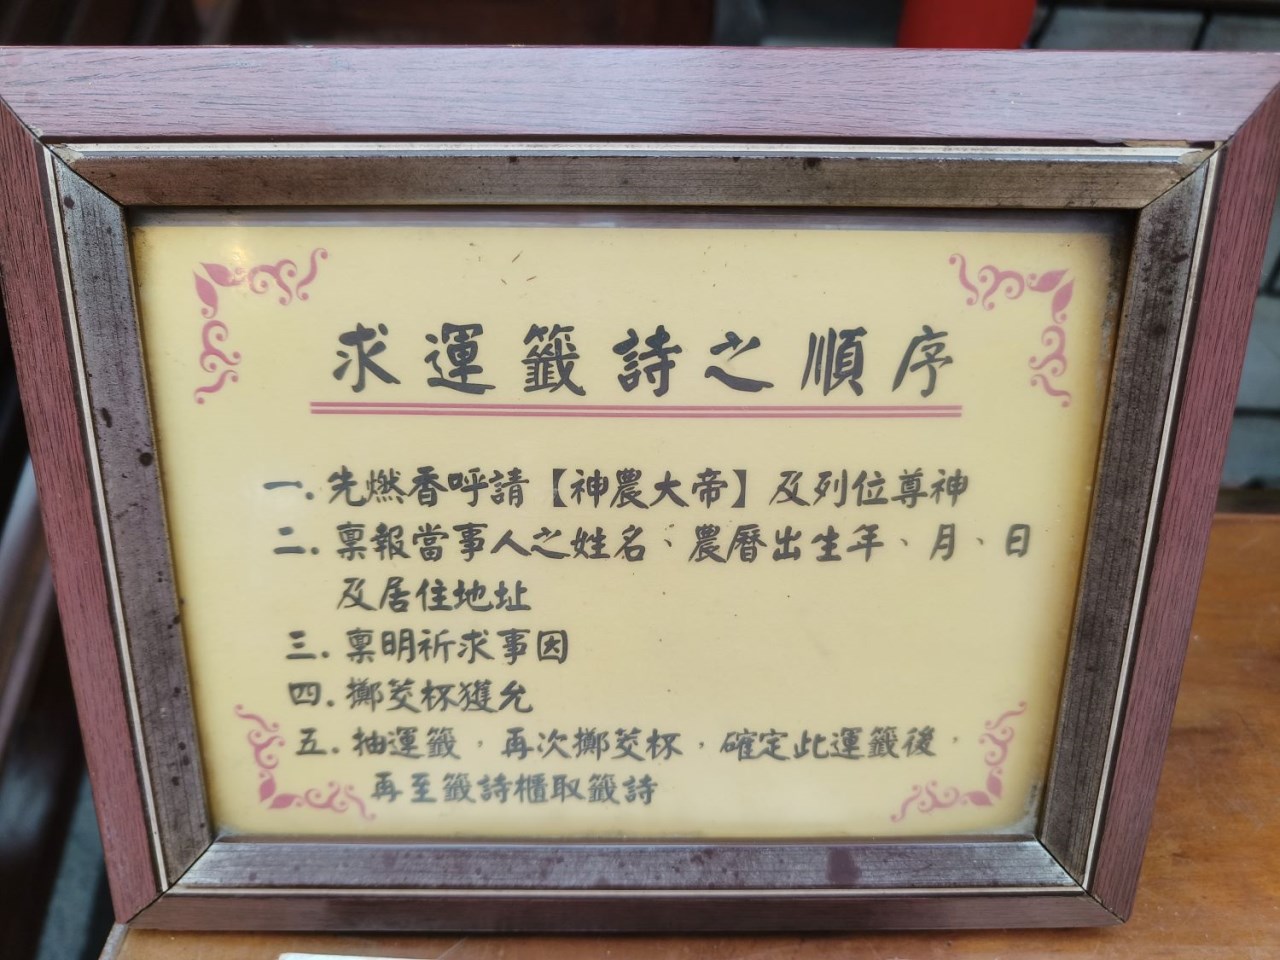 求運籤詩之順序
一.先燃香呼請【神農大帝】及列位尊神
二.稟報當事人之姓名、農曆出生年、月、日
及居住地址
三.稟明祈求事因
四.擲筊杯獲允
五.抽運籤,再次擲筊杯,確定此運籤後,
再至籤詩櫃取籤詩